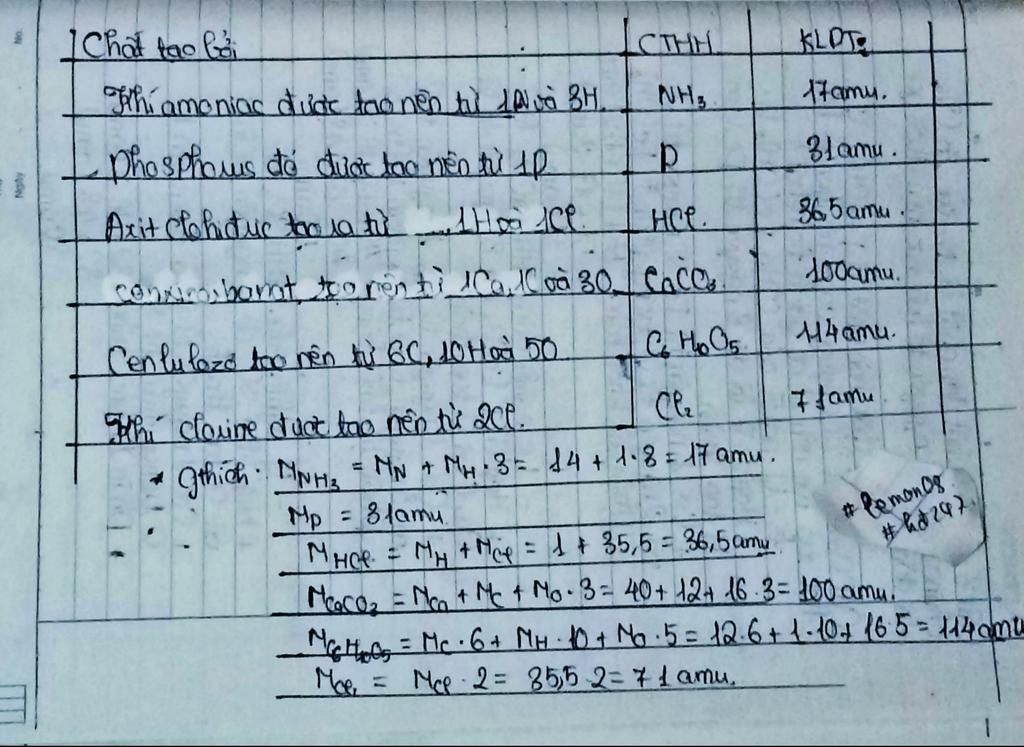 Chất tạo bởi CTHH KLPT
Khí amoniac được tạo nên từ 1N và 3H NH3 17amu.
Phosphorus đỏ được tạo nên từ 1P P 31amu.
Axit clohiđric tạo ra từ 1H và 1Cl HCl. 36,5amu.
canxicacbonat, tạo nên từ 1Ca, 1C và 3O CaCO3 100amu.
Cenlulozơ tạo nên từ 6C, 10H và 5O C6H10O5 114amu.
Khí clorine được tạo nên từ 2Cl. Cl2 71amu
* Gthích. MNH3 = MN + MH . 3 = 14 + 1.3 = 17 amu.
MP = 31amu
MHCl = MH + MCl = 1 + 35,5 = 36,5amu
MCaCO3 = MCa + MC + MO . 3 = 40 + 12 + 16.3 = 100 amu.
MC6H10O5 = MC . 6 + MH . 10 + MO . 5 = 12.6 + 1.10 + 16.5 = 114amu
MCl2 = MCl . 2 = 35,5.2 = 71amu.
#lemon08
#hđ247